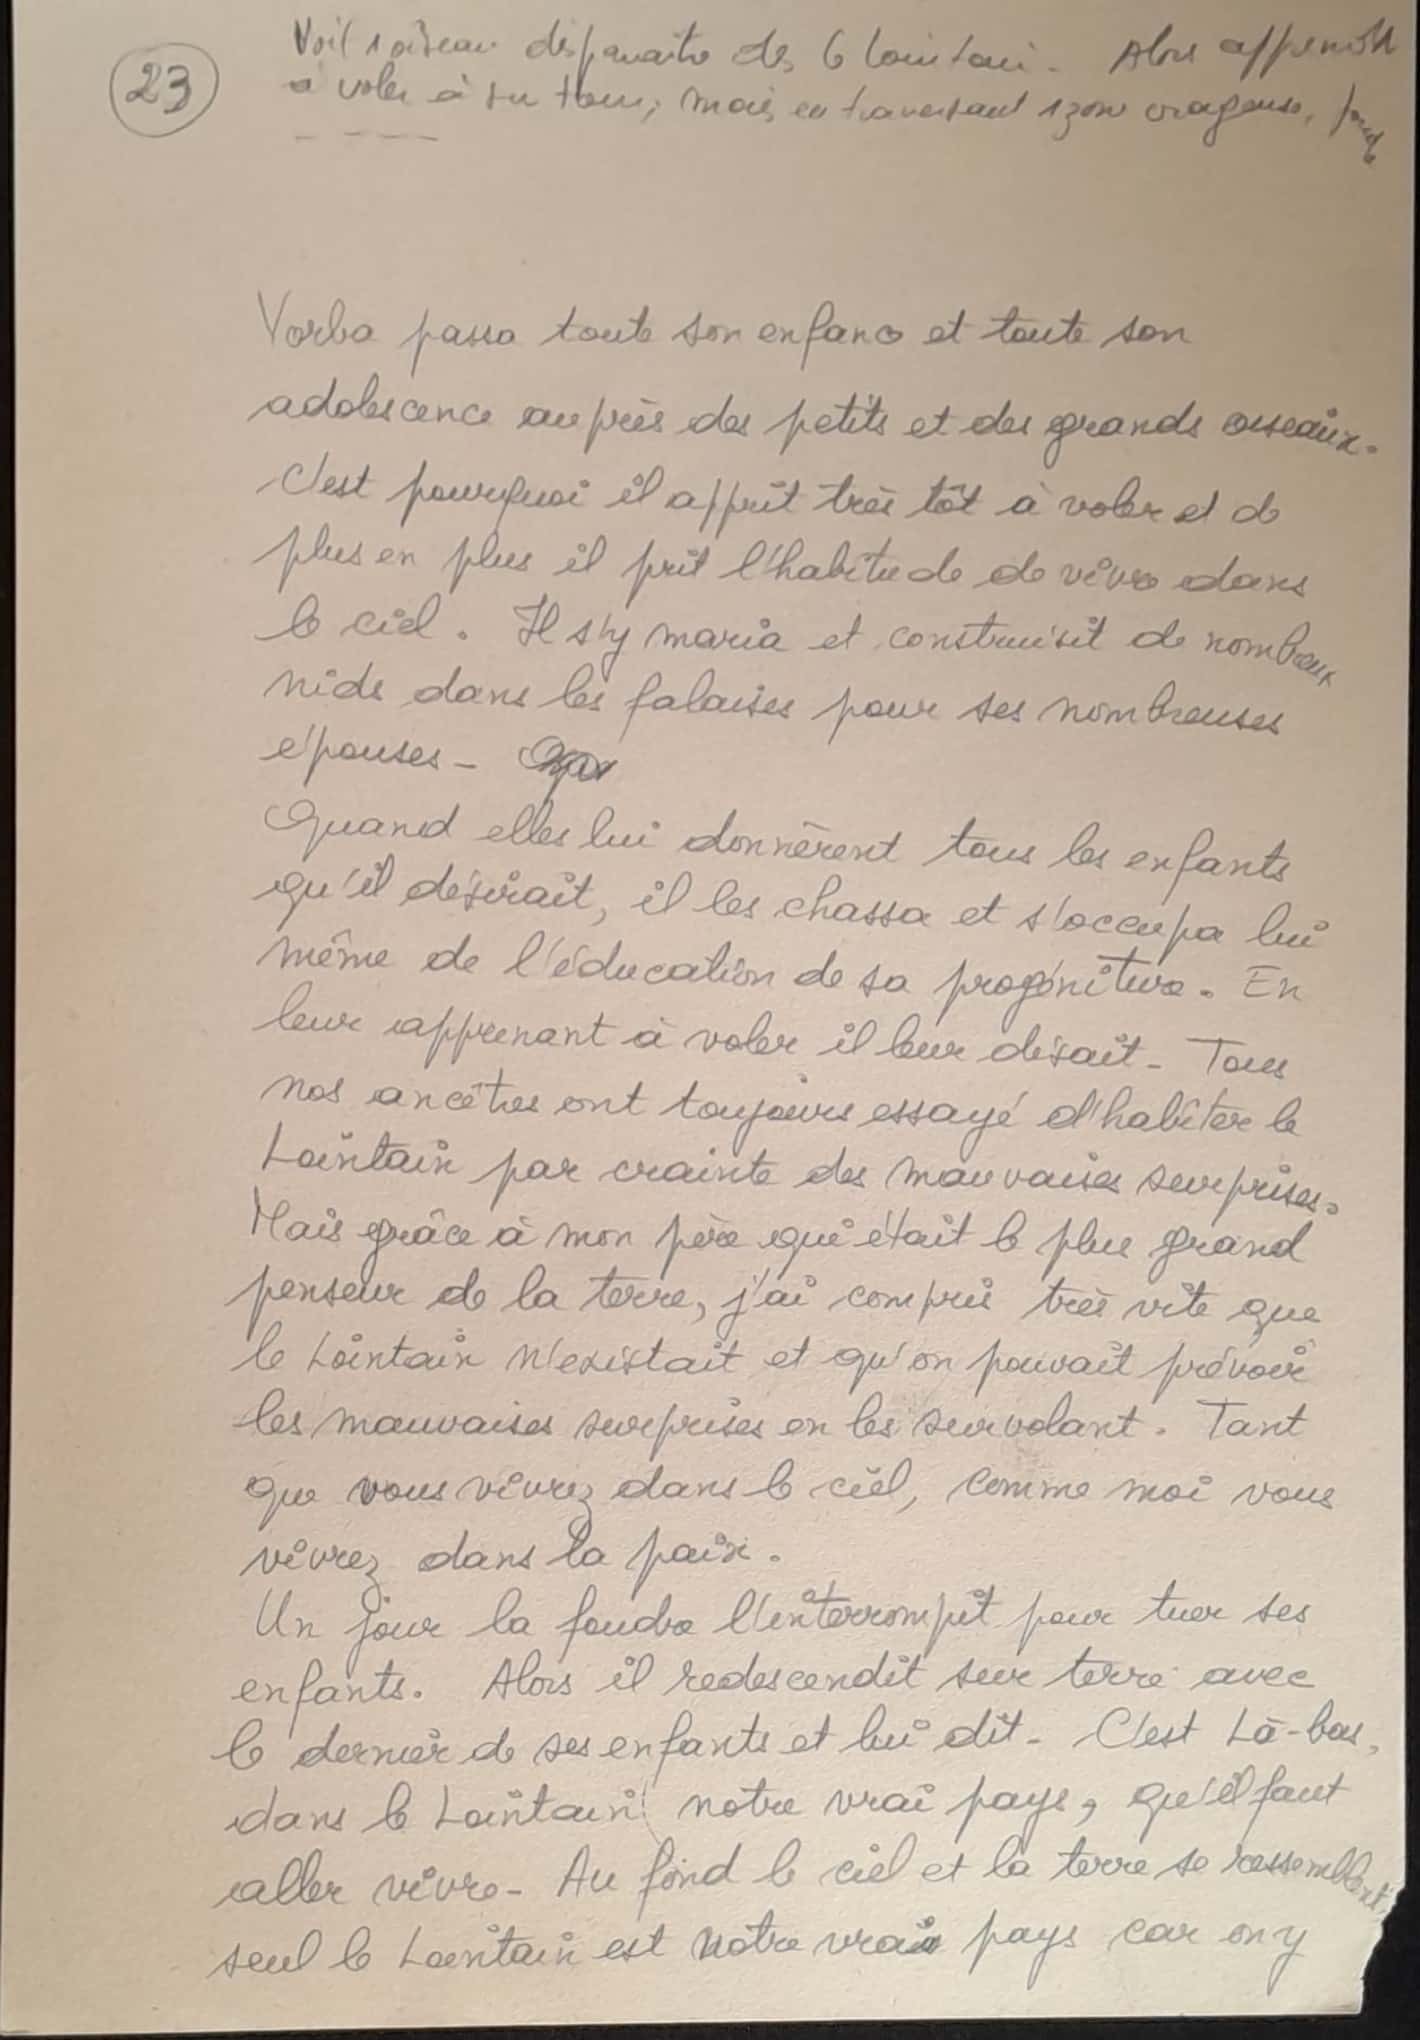 23
Voit 1 oiseau disparaître ds le lointain. Alors apprend
à voler à son tour, mais en traversant 1 zone orageuse,
Yorba passa toute son enfance et toute son
adolescence auprès des petits et des grands oiseaux.
C'est pourquoi il apprit très tôt à voler et de
plus en plus il prit l'habitude de vivre dans
le ciel. Il s'y maria et construisit de nombreux
nids dans les falaises pour ses nombreuses
épouses -
Quand elles lui donnèrent tous les enfants
qu'il désirait, il les chassa et s'occupa lui
même de l'éducation de sa progéniture. En
leur apprenant à voler il leur disait - Tous
nos ancêtres ont toujours essayé d'habiter le
Lointain par crainte des mauvaises surprises.
Mais grâce à mon père qui était le plus grand
penseur de la terre, j'ai compris très vite que
le Lointain n'existait et qu'on pouvait prévoir
les mauvaises surprises en les survolant. Tant
que vous vivrez dans le ciel, comme moi vous
vivrez dans la paix.
Un jour la foudre l'interrompit pour tuer ses
enfants. Alors il redescendit sur terre avec
le dernier de ses enfants et lui dit - C'est Là-bas,
dans le Lointain notre vrai pays, qu'il faut
aller vivre - Au fond le ciel et la terre se ressemblent,
seul le Lointain est notre vrai pays car on y